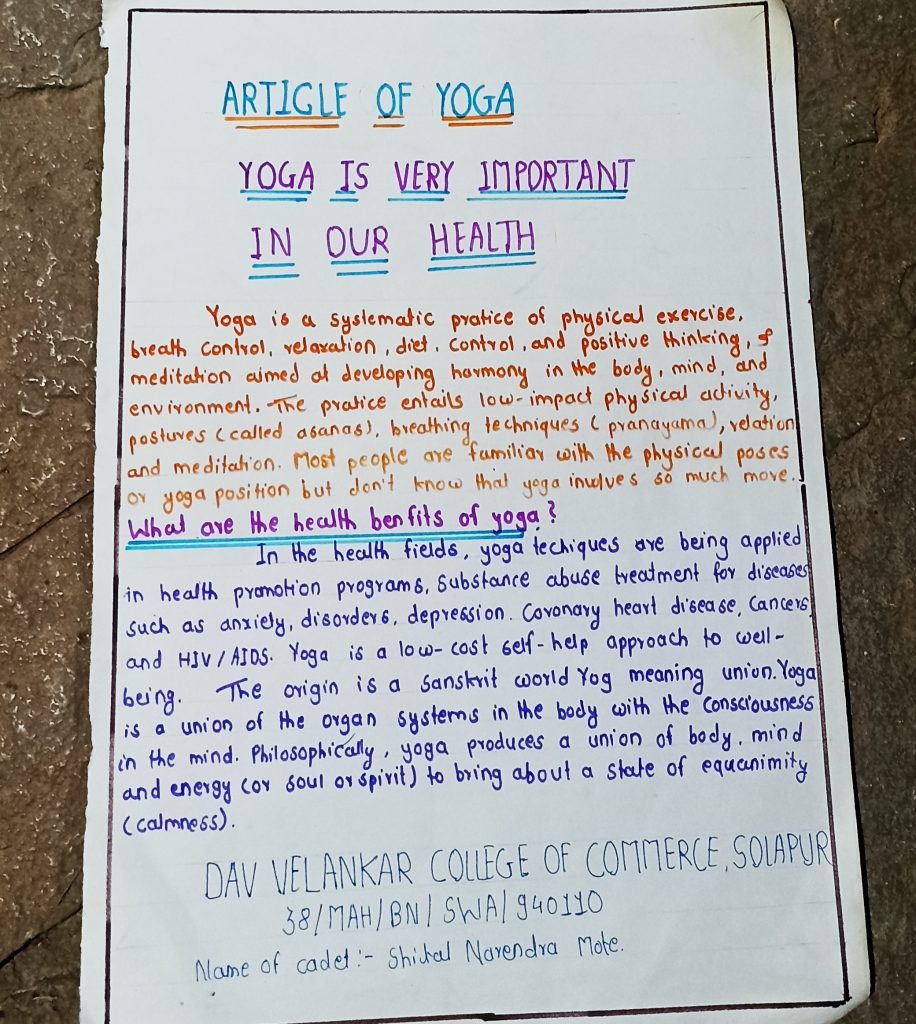 ARTICLE OF YOGA
YOGA IS VERY IMPORTANT
IN OUR HEALTH
Yoga is a systematic pratice of physical exercise,
breath control, relaxation, diet. control, and positive thinking, &
meditation aimed at developing harmony in the body, mind, and
environment. The pratice entails low-impact physical activity,
postures (called asanas), breathing techniques (pranayama), relation
and meditation. Most people are familiar with the physical poses
or yoga position but don't know that yoga involves so much more.
What are the health benfits of yoga?
In the health fields, yoga techiques are being applied
in health promotion programs, substance abuse treatment for diseases
such as anxiety, disorders, depression. Coronary heart disease, Cancers
and HIV/AIDS. Yoga is a low-cost self-help approach to well-
being. The origin is a sanskrit world Yog meaning union. Yoga
is a union of the organ systems in the body with the consciousness
in the mind. Philosophically, yoga produces a union of body, mind
and energy (or soul or spirit) to bring about a state of equanimity
(calmness).
DAV VELANKAR COLLEGE OF COMMERCE, SOLAPUR
38/MAH/BN/SWA/940110
Name of cadet:- Narendra Mote.